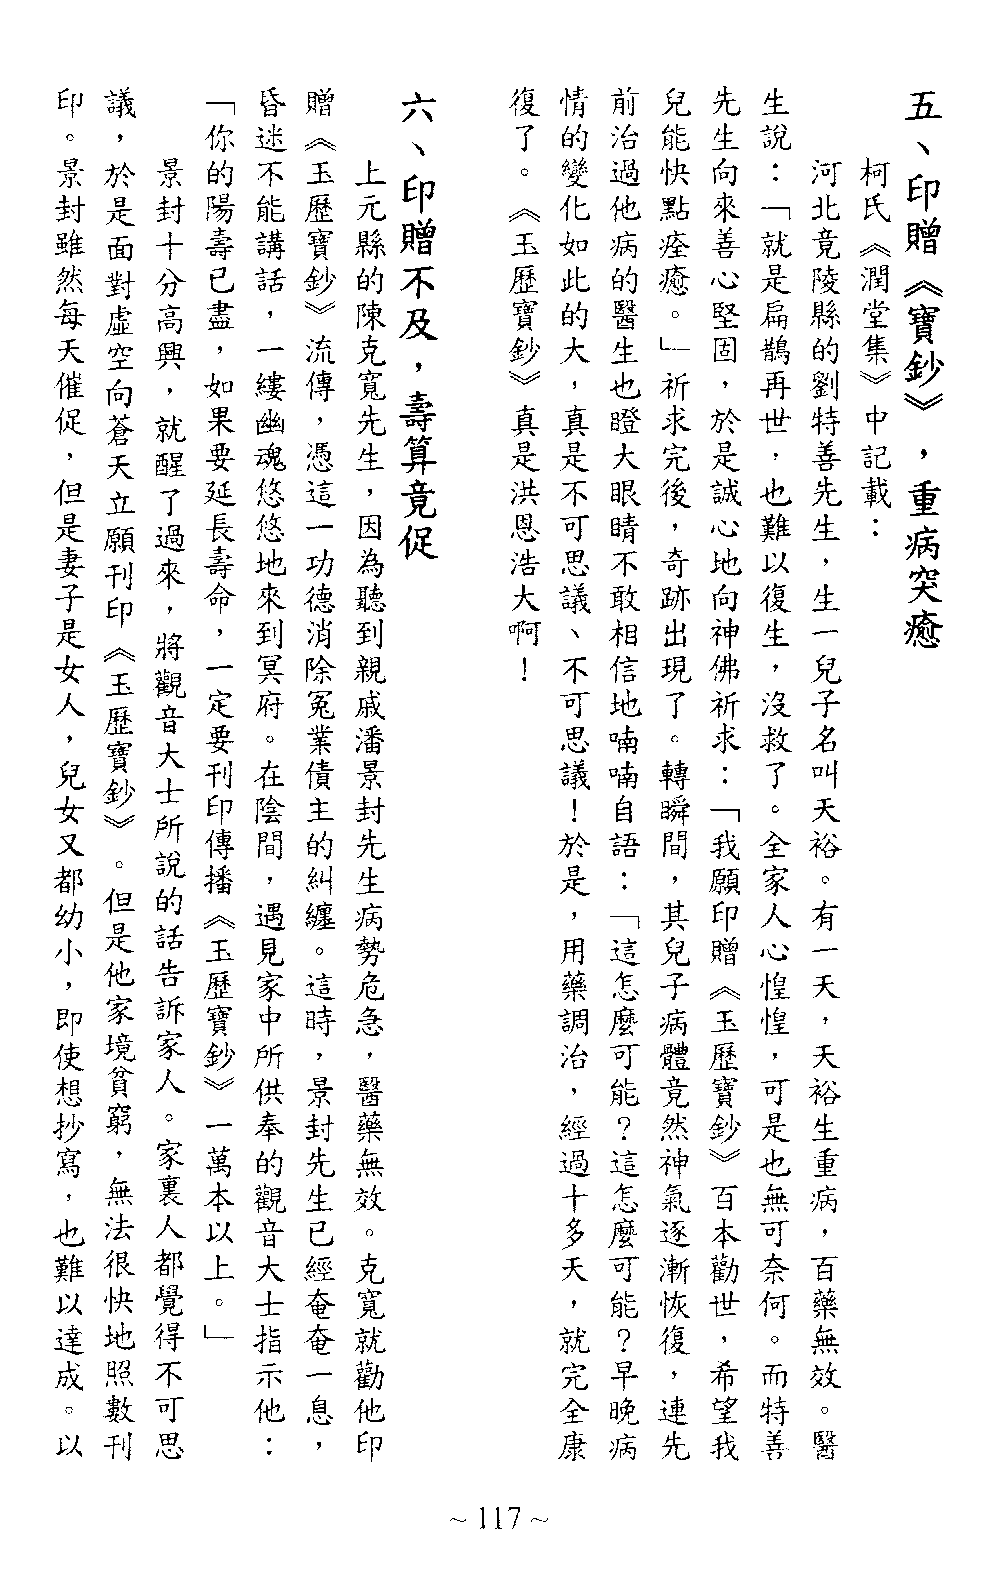 五、印贈《寶鈔》，重病突癒
柯氏《潤堂集》中記載：
河北竟陵縣的劉特善先生，生一兒子名叫天裕。有一天，天裕生重病，百藥無效。醫
生說：「就是扁鵲再世，也難以復生，沒救了。全家人心惶惶，可是也無可奈何。而特善
先生向來善心堅固，於是誠心地向神佛祈求：「我願印贈《玉歷寶鈔》百本勸世，希望我
兒能快點痊癒。」祈求完後，奇跡出現了。轉瞬間，其兒子病體竟然神氣逐漸恢復，連先
前治過他病的醫生也瞪大眼睛不敢相信地喃喃自語：「這怎麼可能？這怎麼可能？早晚病
情的變化如此的大，真是不可思議、不可思議！於是，用藥調治，經過十多天，就完全康
復了。《玉歷寶鈔》真是洪恩浩大啊！
六、印贈不及，壽算竟促
上元縣的陳克寬先生，因為聽到親戚潘景封先生病勢危急，醫藥無效。克寬就勸他印
贈《玉歷寶鈔》流傳，憑這一功德消除冤業債主的糾纏。這時，景封先生已經奄奄一息，
昏迷不能講話，一縷幽魂悠悠地來到冥府。在陰間，遇見家中所供奉的觀音大士指示他：
「你的陽壽已盡，如果要延長壽命，一定要刊印傳播《玉歷寶鈔》一萬本以上。」
景封十分高興，就醒了過來，將觀音大士所說的話告訴家人。家裏人都覺得不可思
議，於是面對虛空向蒼天立願刊印《玉歷寶鈔》。但是他家境貧窮，無法很快地照數刊
印。景封雖然每天催促，但是妻子是女人，兒女又都幼小，即使想抄寫，也難以達成。以
~117~